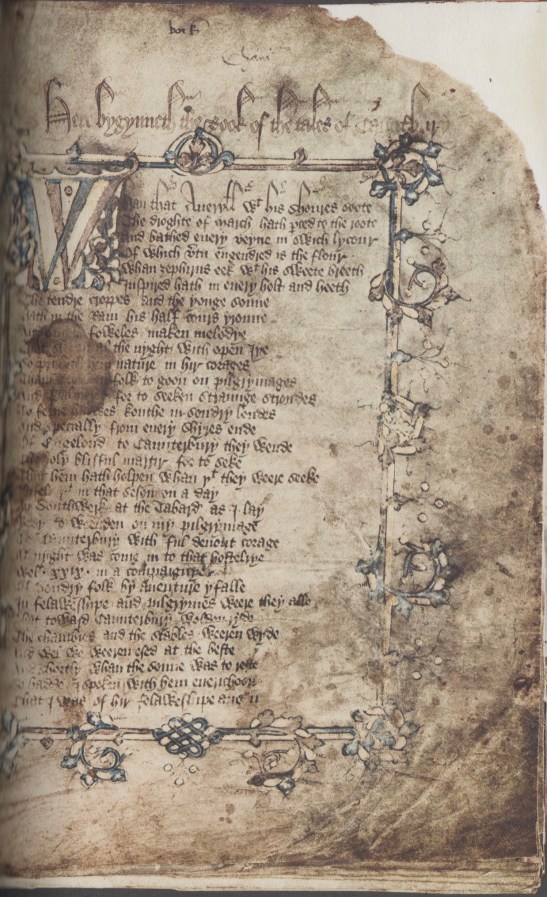 Here bygynneth the Book of the tales of Caunterbury
Whan that Aueryll wt his shoures soote
The droghte of march hath perced to the roote
And bathed euery veyne in swich lycour
Of which vertu engendred is the flour
Whan zephirus eek wt his sweete breeth
Inspired hath in euery holt and heeth
The tendre croppes and the yonge sonne
hath in the Ram his half cours yronne
foweles maken melodye
al the nyght with open Iye
nature in hir corages
folk to goon on pilgrymages
for to seeken straunge strondes
To ferne kouthe in sondry londes
And specially from euery shyres ende
Of Engelond to Caunterbury they wende
holy blisful martir for to seke
That hem hath holpen whan þt they weere seeke
in that seson on a day
In Southwerk at the Tabard as I lay
to weenden on my pilgrymage
To Caunterbury with ful deuout corage
At nyght was come in to that hostelrye
Wel .xxix. in a compaignye
Of sondry folk by auenture yfalle
In felaweshipe and pilgrymes weere they alle
That toward Caunterbury wolden ryde
The chambres and the stables weeren wyde
And wel we weeren esed at the beste
And shortly whan the sonne was to reste
So hadde I spoken with hem euerichoon
That I was of hir felaweshipe anon